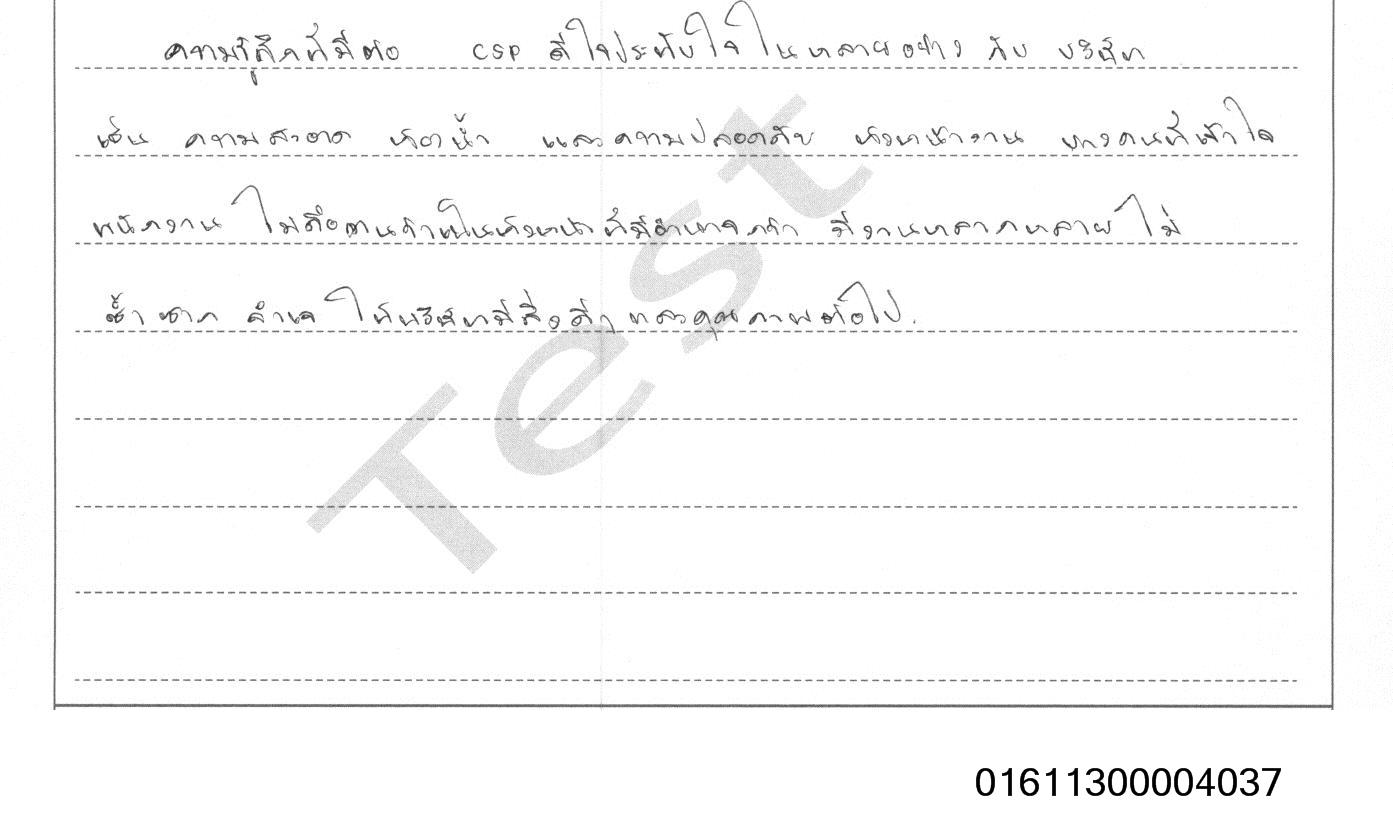 ความรู้สึกที่มีต่อ CSP ดีใจประทับใจในหลายอย่าง กับ บริษัท
เช่น ความสะอาด ห้องน้ำ และความปลอดภัย หัวหน้างาน บางคนที่เข้าใจ
พนักงาน ไม่ถือตนว่าเป็นหัวหน้าที่มีอำนาจกว่า มีงานหลากหลาย ไม่
ซ้ำซาก ให้บริษัทมีสิ่งดีๆ และคุณภาพต่อไป.
Test
01611300004037